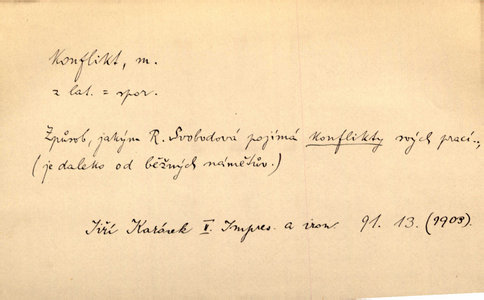 Konflikt, m.
z lat. = spor.
Způsob, jakým R. Svobodová pojímá konflikty svých prací.,
(je daleko od běžných námětův.)
Jiří Karásek V. Impres. a iron 91. 13. (1903).